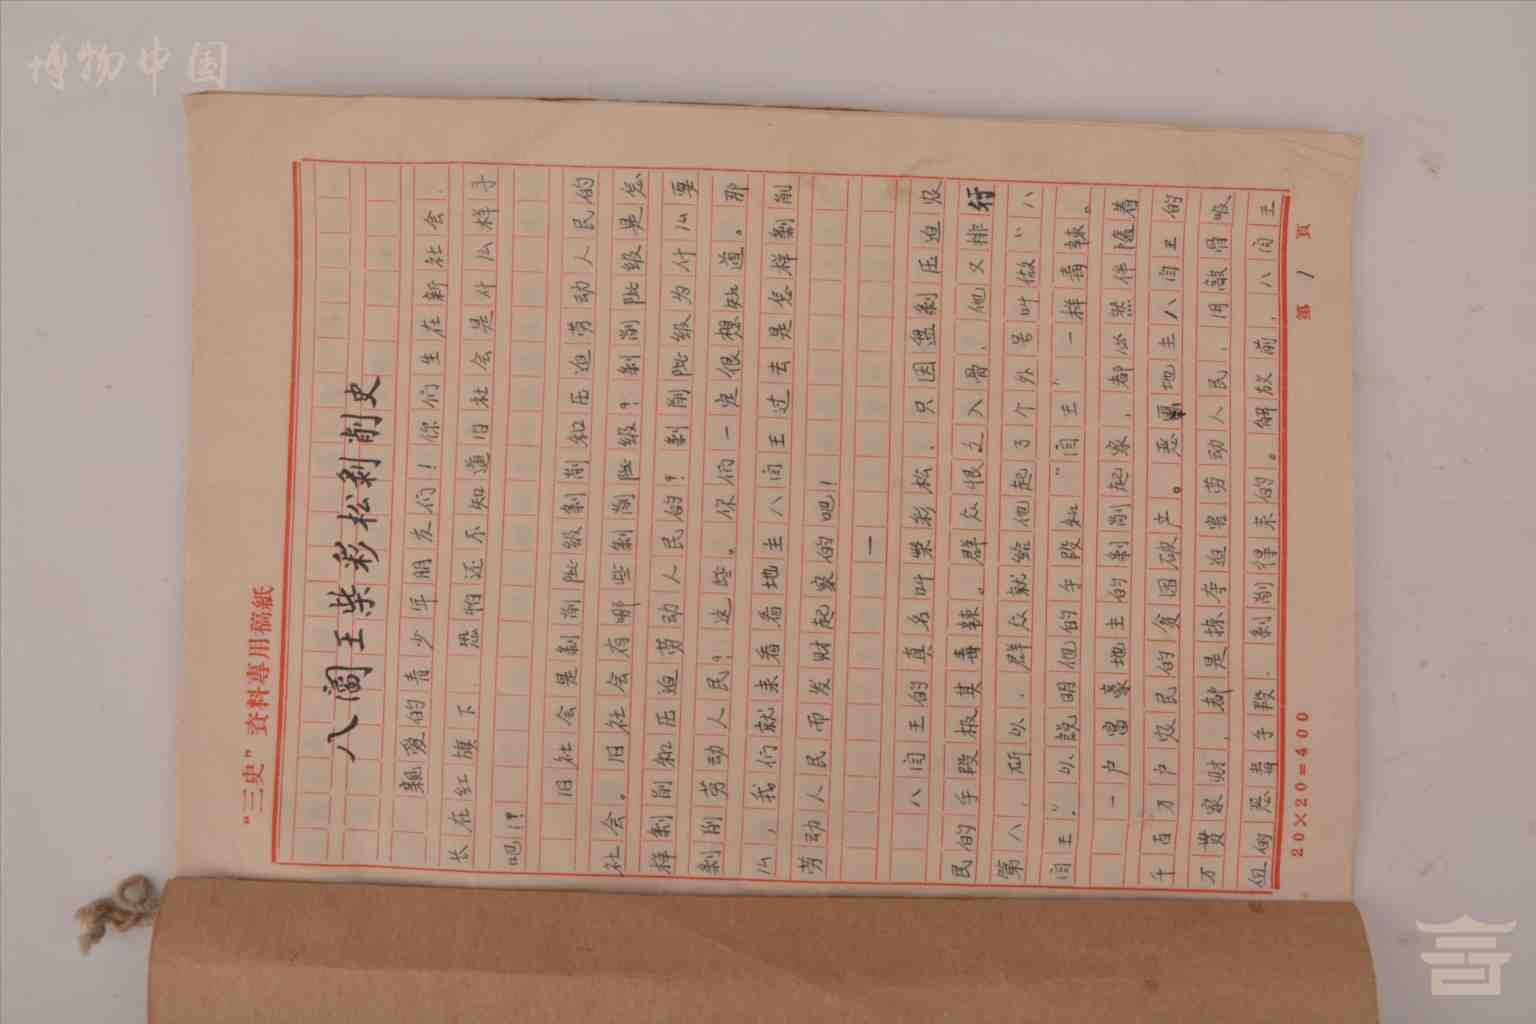 博物中国
“三史”資料專用稿紙
八阎王柴彩松剝削史
親爱的青少年朋友们！你们生在新社会，
长在红旗下，恐怕还不知道旧社会是对么样子
吧！？
旧社会是剝削阶级剝削和压迫劳动人民的
社会。旧社会有哪些剝削阶级？剝削阶级是怎
样剝削和压迫劳动人民的？剝削阶级为什么要
剝削劳动人民？这些。你们一定很想知道。那
么，我们就来看看地主八闫王过去是怎样剝削
劳动人民而发财起家的吧！
一
八闫王的真名叫柴彩松，只因盘剝压迫农
民的手段极其毒辣。群众恨之入骨，他又排行
第八，所以，群众就给他起了个外号叫做“八
闫王”。以說明他的手段和“闫王”一样毒辣。
一户富豪地主的剝削起家，都必然伴随着
千百万户农民的贫困破产。恶霸地主八闫王的
万贯家财，都是掠夺迫害劳动人民，用敲骨吸
血的恶毒手段，剝削得来的。解放前，八闫王
20×20=400
第 1 頁